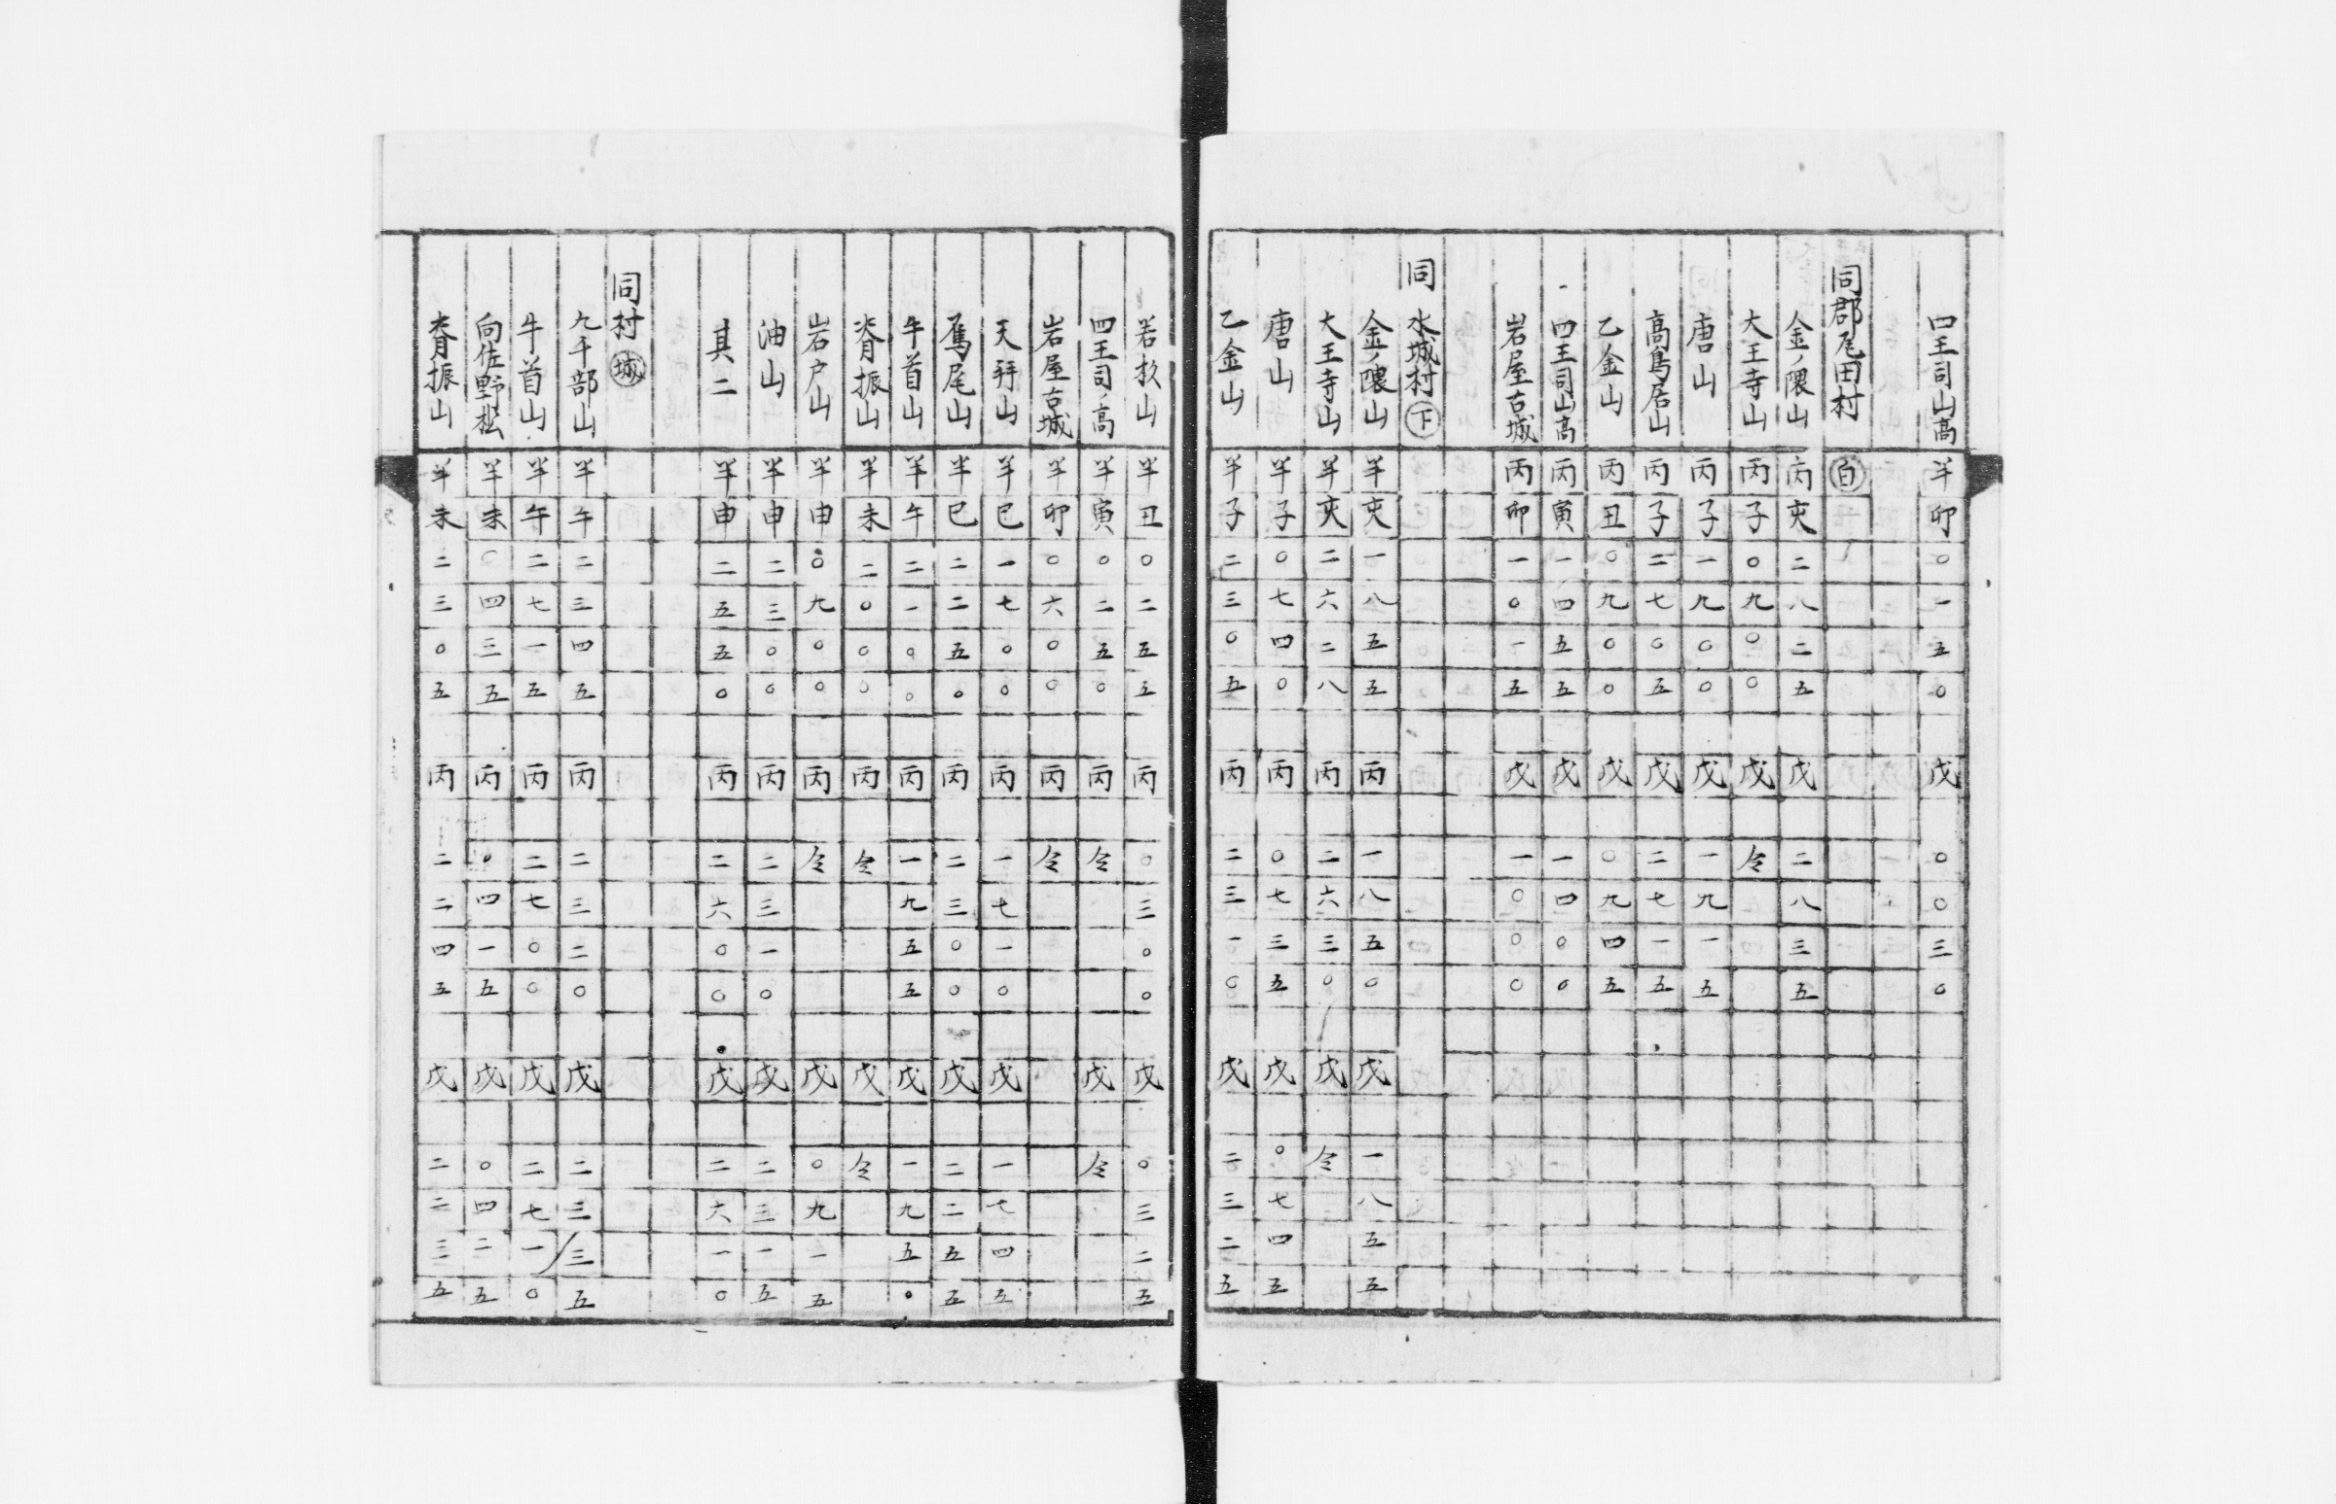 四王司山高 半卯〇一五〇 戊〇〇三〇
同郡尾田村 白
金ノ隈山 丙亥二八二五 戊二八三五
大王寺山 丙子〇九〇〇 戊仝
唐山 丙子一九〇〇 戊一九一五
高鳥居山 丙子二七〇五 戊二七一五
乙金山 丙丑〇九〇〇 戊〇九四五
四王司山高 丙寅一四五五 戊一四〇〇
岩屋古城 丙卯一〇一五 戊一〇〇〇
同 水城村 下
金ノ隈山 半亥一八五五 丙一八五〇 戊一八五五
大王寺山 半亥二六二八 丙二六三〇 戊仝
唐山 半子〇七四〇 丙〇七三五 戊〇七四五
乙金山 半子二三〇五 丙二三一〇 戊二三二五
若杉山 半丑〇二五五 丙〇三〇〇 戊〇三二五
四王司ノ高 半寅〇二五〇 丙仝 戊仝
岩屋古城 半卯〇六〇〇 丙仝
天拜山 半巳一七〇〇 丙一七一〇 戊一七四五
鴈尾山 半巳二二五〇 丙二三〇〇 戊二二五五
牛首山 半午二一〇〇 丙一九五五 戊一九五〇
脊振山 半未二〇〇〇 丙仝 戊仝
岩戸山 半申〇九〇〇 丙仝 戊〇九一五
油山 半申二三〇〇 丙二三一〇 戊二三一五
其二 半申二五五〇 丙二六〇〇 戊二六一〇
同村 城
九千部山 半午二三四五 丙二三二〇 戊二三三五
牛首山 半午二七一五 丙二七〇〇 戊二七一〇
向佐野松 半未〇四三五 丙〇四一五 戊〇四二五
脊振山 半未二三〇五 丙二二四五 戊二二三五